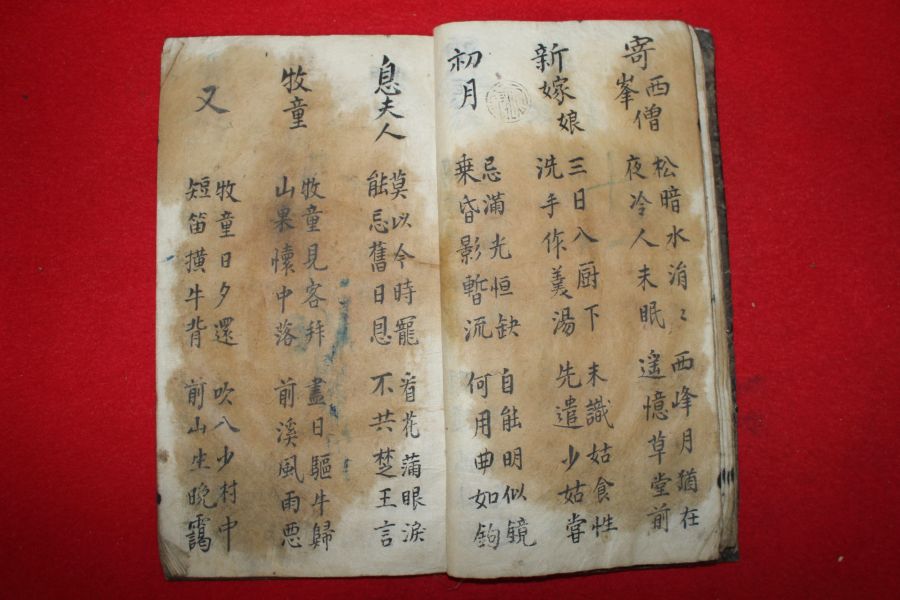 寄西峯僧
松暗水涓〻
夜冷人未眠
西峰月猶在
遥憶草堂前
新嫁娘
三日入厨下
洗手作羹湯
未識姑食性
先遣少姑嘗
初月
忌滿光恒缺
乗昏影暫流
自能明似鏡
何用曲如鉤
息夫人
莫以今時寵
能忌舊日恩
看花蒲眼淚
不共楚王言
牧童
牧童見客拜
山果懷中落
盡日驅牛歸
前溪風雨悪
又
牧童日夕還
短笛横牛背
吹入少村中
前山生晚靄